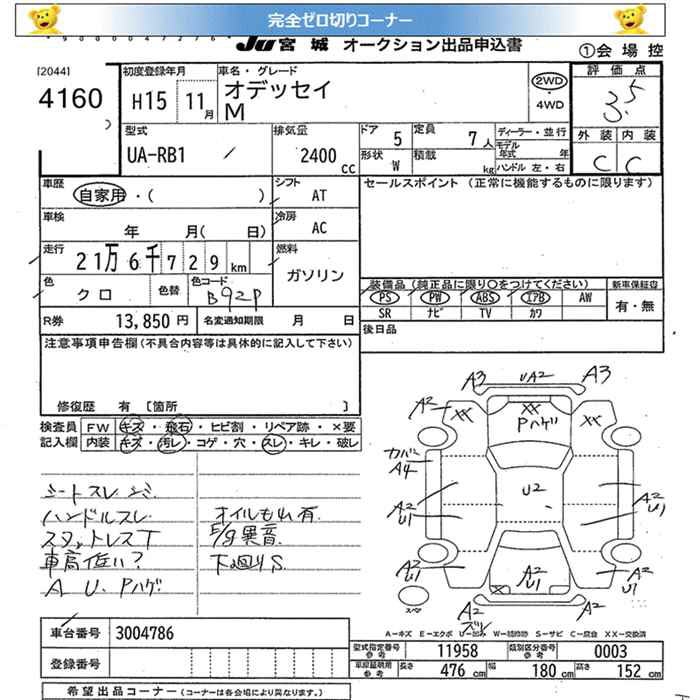 完全ゼロ切りコーナー
JU 宮城 オークション出品申込書
①会場控
[2044]
4160
初度登録年月
H15 11月
車名・グレード
オデッセイ
M
2WD・4WD
評価点
3.5
外装 内装
C C
型式
UA-RB1
排気量
2400cc
ドア 5
定員 7人
形状 W
積載 kg
ディーラー・並行
モデル年式 年
ハンドル 左・右
車歴
自家用・( )
シフト AT
セールスポイント (正常に機能するものに限ります)
車検 年 月( 日)
冷房 AC
走行 21万6千729km
燃料 ガソリン
色 クロ
色替
色コード B92P
装備品 (純正品に限り○をつけてください)
新車保証書
PS PW ABS エアB AW
有・無
SR ナビ TV カワ
R券 13,850円
名変通知期限 月 日
後日品
注意事項申告欄(不具合内容等は具体的に記入して下さい)
修復歴 有 [箇所 ]
検査員記入欄
FW キズ・飛石・ヒビ割・リペア跡・×要
内装 キズ・汚レ・コゲ・穴・スレ・キレ・破レ
シートスレ シミ
ハンドルスレ
スタットレスT
車高低い?
A U. Pハゲ
オイルもれ有.
E/g異音.
下回りS
A3 UA2 A3
A2 XX XX XX
Pハゲ
カバー
A4
A2
U1
U2
A2
U1
A2
U1
A2
U1
A2
U1
X
スペア
A2
ズレ
A2
A-キズ E-エクボ U-凹み W-補修跡 S-サビ C-腐食 XX-交換済
車台番号 3004786
型式指定番号 参考 11958
類別区分番号 参考 0003
登録番号
車庫証明用 参考 長さ 476cm 幅 180cm 高さ 152cm
希望出品コーナー (コーナーは各会場により異なります。)